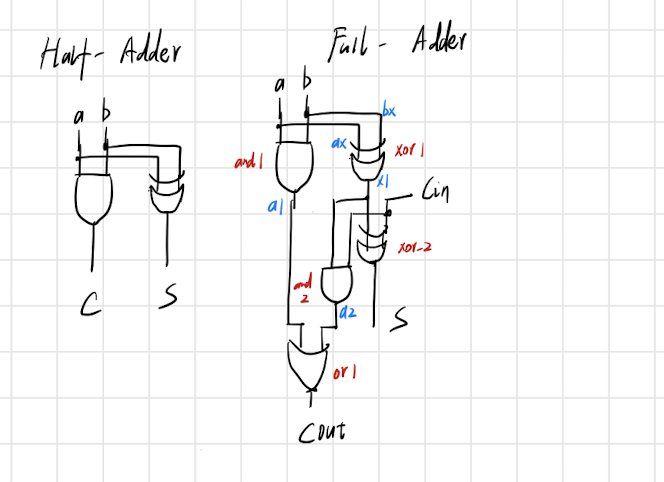 Half- Adder
Full- Adder
a b
a b
bx
ax
and1
xor1
a1
x1
Cin
xor-2
and
2
a2
C S
S
or1
Cout